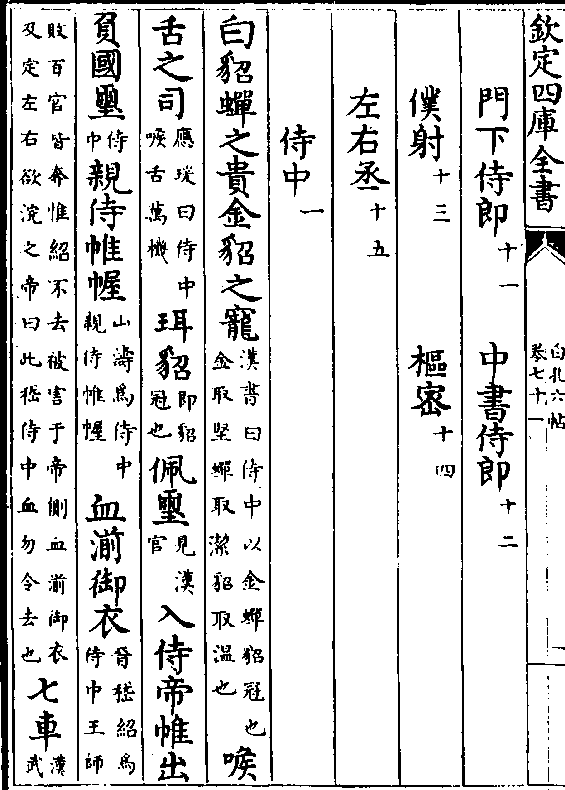 欽定四庫全書
白孔六帖
卷七十一
一
門下侍郎十一　中書侍郎十二
僕射十三　樞密十四
左右丞十五
侍中一
白貂蟬之貴金貂之寵漢書曰侍中以金蟬貂冠也金取堅蟬取潔貂取溫也喉
舌之司應瑗曰侍中喉舌萬機珥貂即貂冠也佩璽見漢官入侍帝帷出
負國璽侍巾親侍帷幄山濤為侍中親侍帷幄血湔御衣晉嵇紹為侍巾王師
敗百官皆奔惟紹不去被害于帝側血湔御衣及定左右欲浣之帝曰此嵇侍中血勿令去也七車漢武